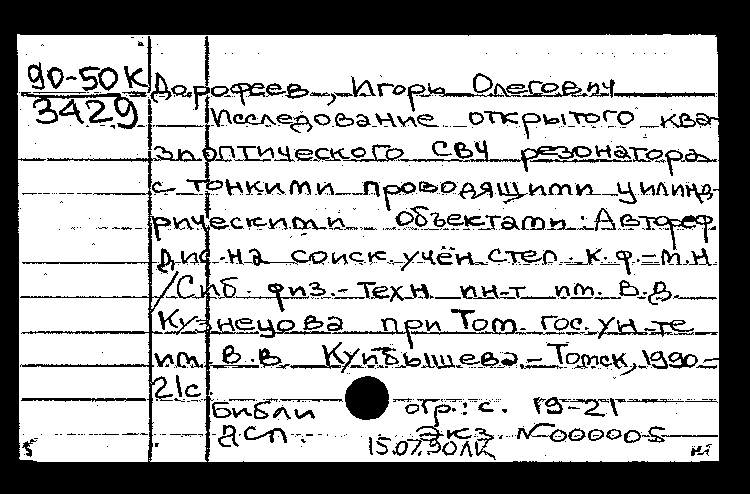 90-50К
3429
Дорофеев, Игорь Олегович
Исследование открытого ква
зиоптического СВЧ резонатора
с тонкими проводящими цилинд-
рическими объектами: Автореф.
дис. на соиск. учён. степ. к.ф.-м.н.
/Сиб. физ.-техн. ин-т им. В.В.
Кузнецова при Том. гос. ун-те
им. В.В. Куйбышева.- Томск, 1990-
21с.
Библи огр.: с. 19-21
ДСП. Экз. N000005
15.07.90ЛК